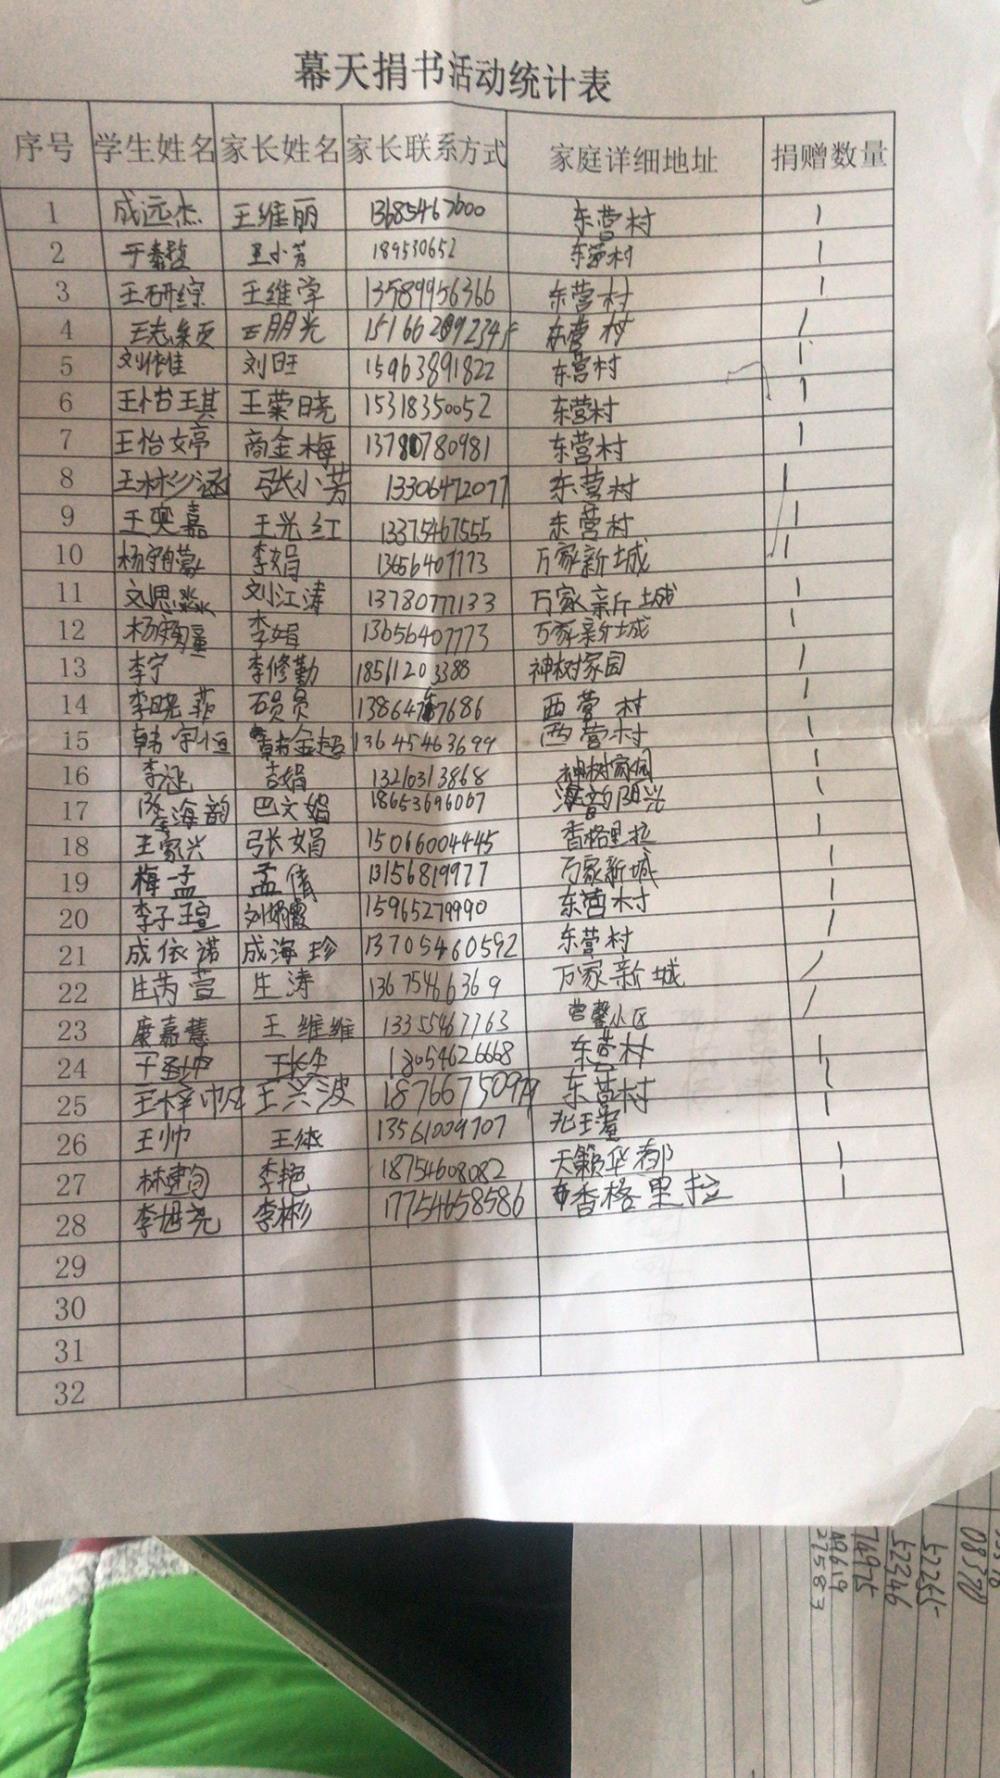 幕天捐书活动统计表
序号 学生姓名 家长姓名 家长联系方式 家庭详细地址 捐赠数量
1 成远杰 王维丽 13685467600 东营村 1
2 于秦哲 王小芳 189530652 东营村 1
3 王研综 王维学 13589956366 东营村 1
4 王志 王朋光 东营村 1
5 刘 刘旺 15963891822 东营村 1
6 王怡琪 王荣晓 15318350052 东营村 1
7 王怡婷 商金梅 13780780981 东营村 1
8 王彬涵 张小芳 13306472077 东营村 1
9 王奕嘉 王光红 13375467555 东营村 1
10 杨 李娟 13656407773 万家新城 1
11 刘思淼 刘江涛 13780777133 万家新城 1
12 杨 李娟 13656407773 万家新城 1
13 李宁 李修勤 18561203388 神树家园 1
14 李晓菲 石员员 西营村 1
15 韩宇恒 韩金超 13645463699 西营村 1
16 李涵 吉娟 13210313868 神树家园 1
17 海韵 巴文娟 18653696067 海韵阳光 1
18 王家兴 张娟 15066004445 香格里拉 1
19 梅孟 孟倩 13156819977 万家新城 1
20 李子瑄 刘娜霞 15965279990 东营村 1
21 成依诺 成海珍 13705460592 东营村 1
22 生芮萱 生涛 13675466369 万家新城 1
23 康嘉慧 王维维 13355467763 营馨小区 1
24 于 18054626668 东营村 1
25 王梓帆 王兴波 东营村 1
26 王帅 王 13561009707 北王 1
27 林建 李艳 18754608082 天籁华都 1
28 李旭尧 李彬 17754658586 香格里拉 1
29
30
31
32
08370
52265
52246
74975
49619
27583